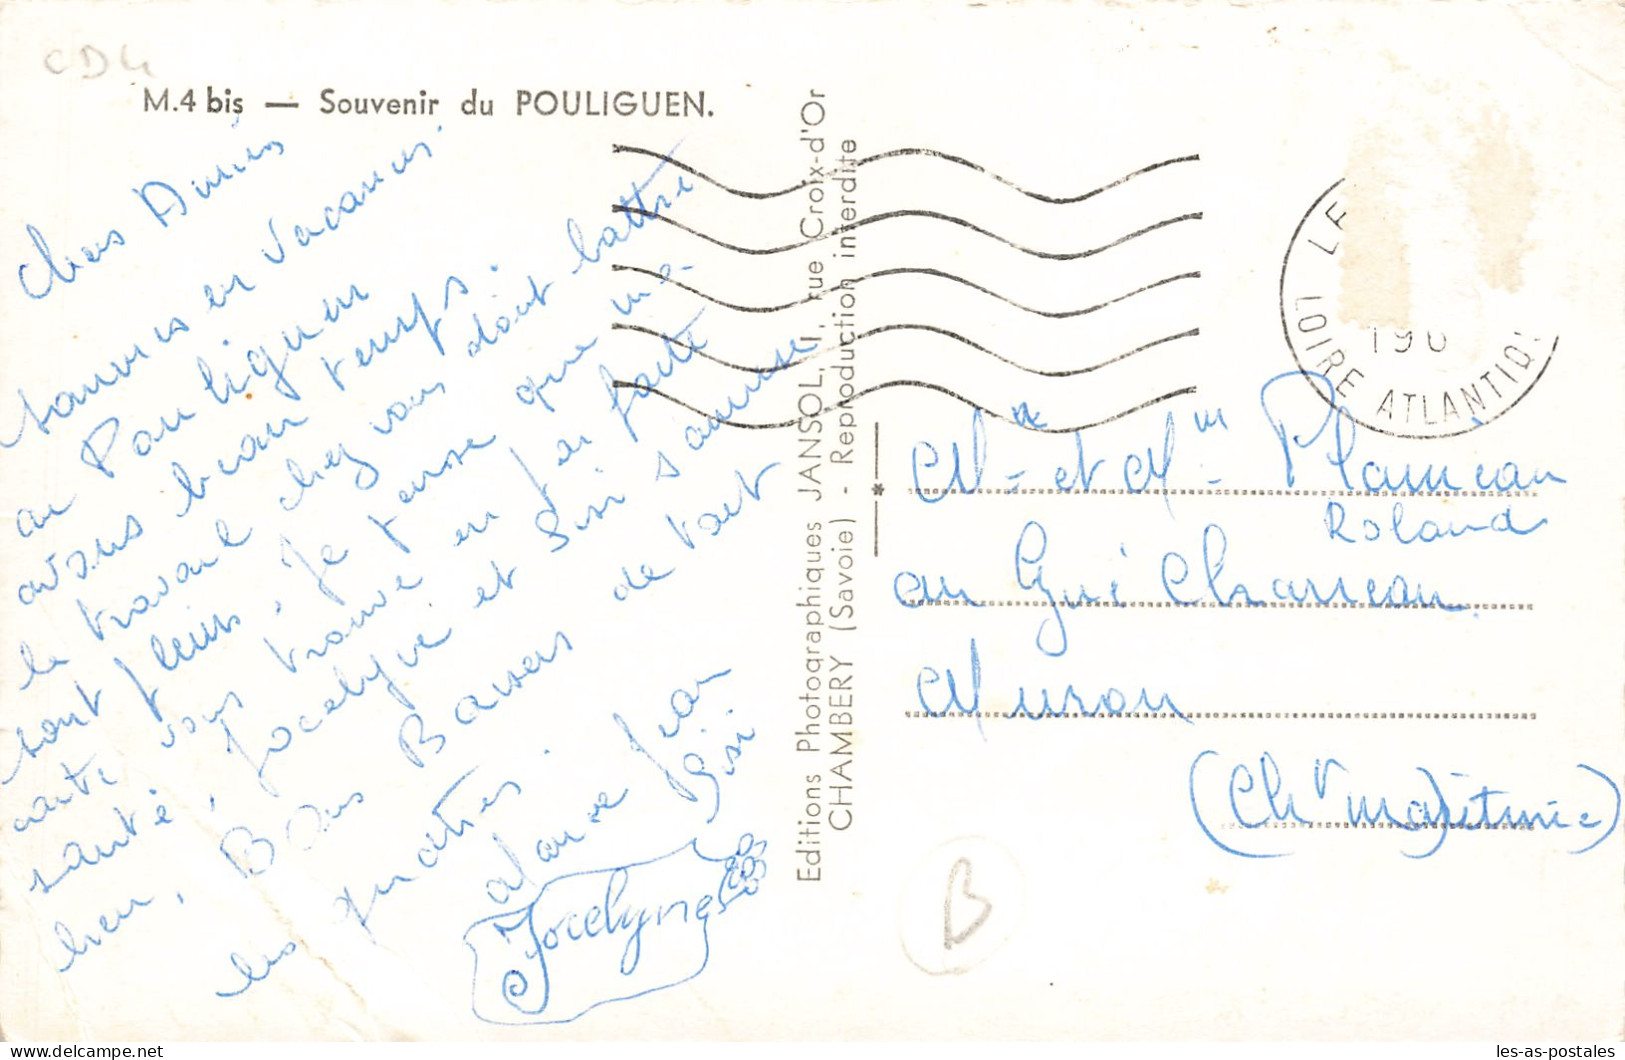 CD4
M.4 bis — Souvenir du POULIGUEN.
Chers Amis
sommes en vacances
au Pouliguen
avons beau temps
le travail chez vous doit battre
sont plein, je pense que ma
carte vous trouve en parfaite
santé, Jocelyne et Sisi s'amuse
bien, Bons Baisers de tout
les quatres.
Jean
Sisi
Jocelyne
Editions Photographiques JANSOL, 1, rue Croix-d'Or
CHAMBERY (Savoie) - Reproduction interdite
LE
196
LOIRE ATLANTIQ
Mr et Mm Plaineau
Roland
au Gué Charreau
Muron
(Chr maritime)
B
delcampe.net
les-as-postales